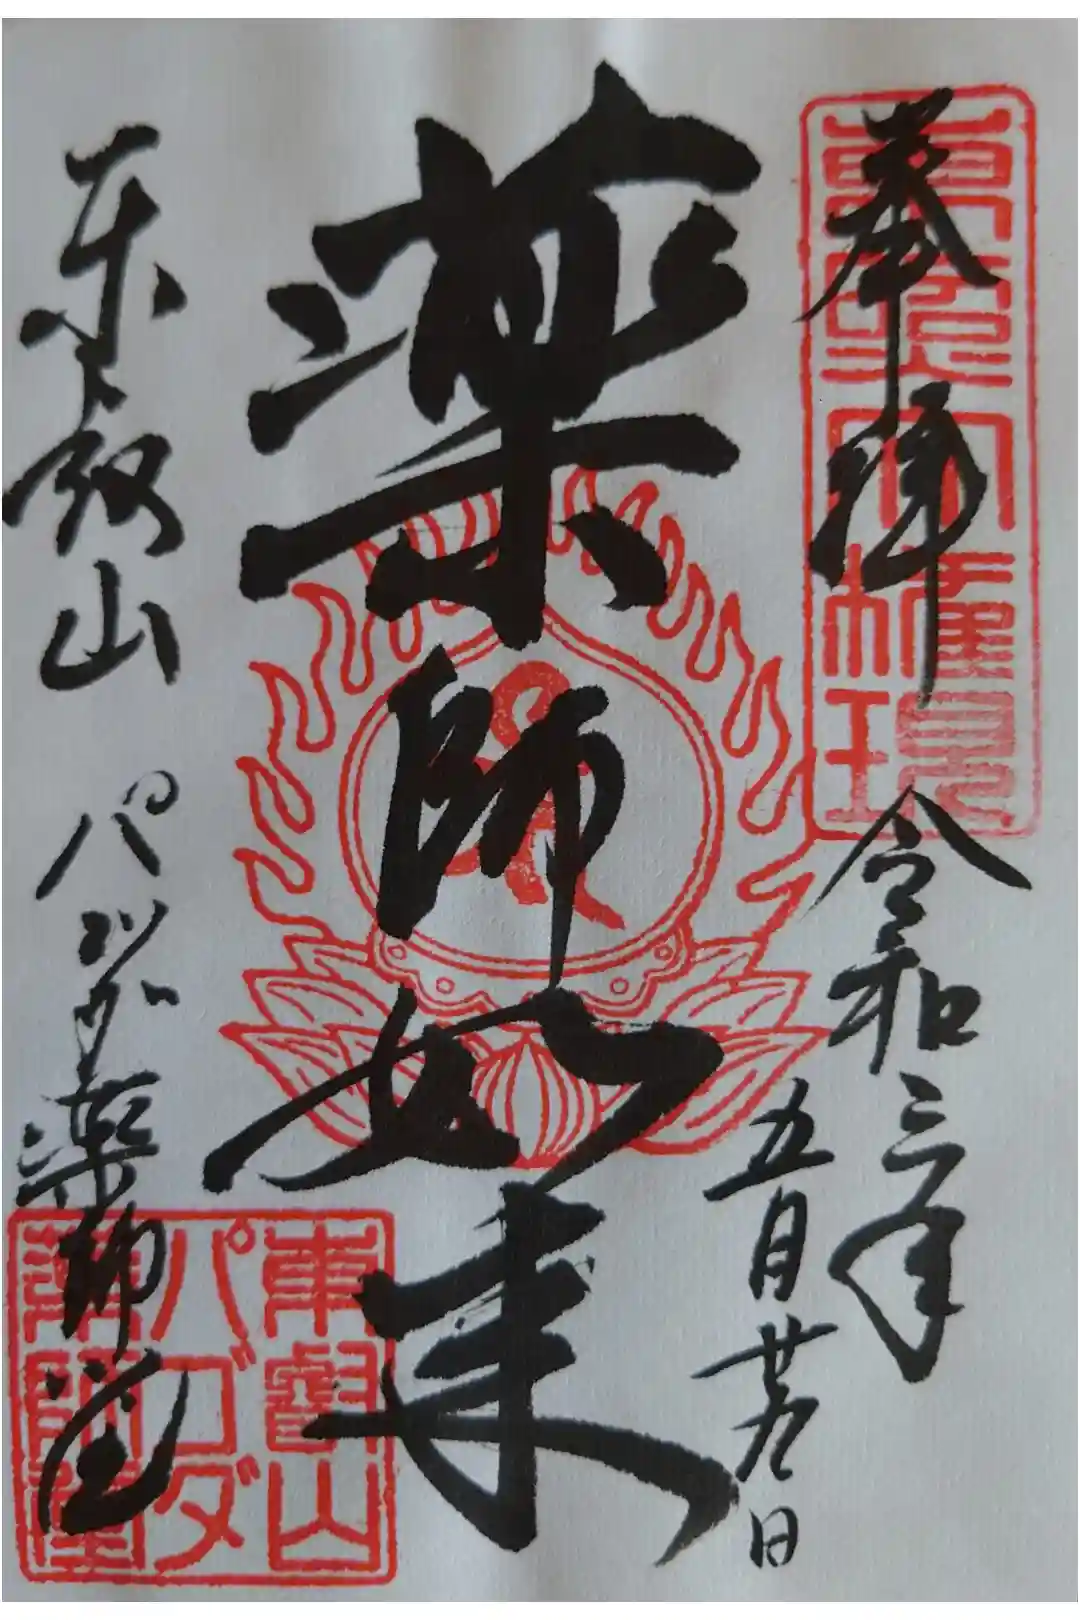 奉拝
東照大權現
令和三年
五月廿九日
薬師如来
東叡山 パゴダ薬師堂
東叡山
パゴダ
薬師堂